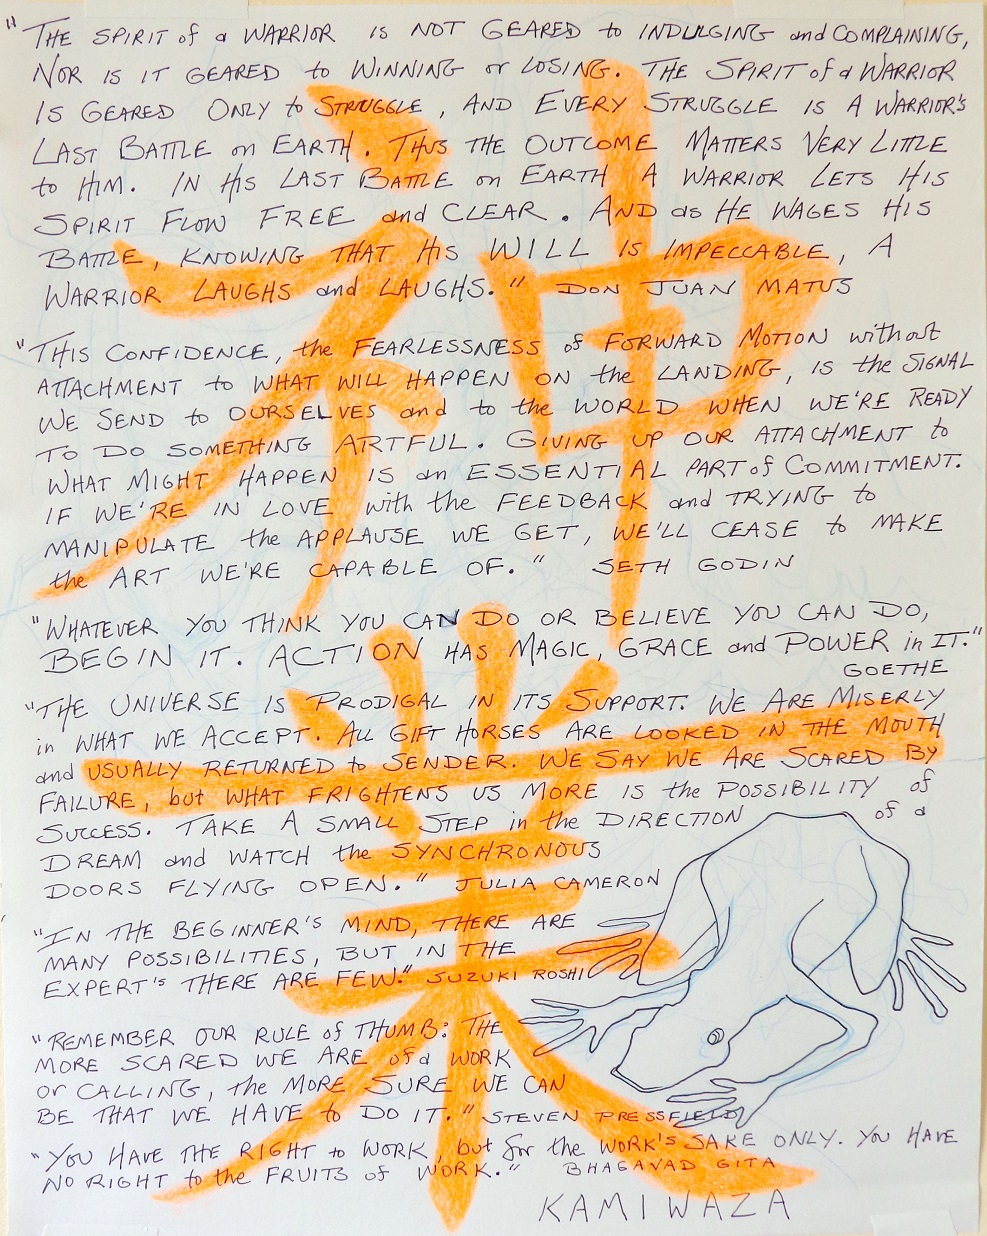 "THE SPIRIT of a WARRIOR IS NOT GEARED to INDULGING and COMPLAINING,
NOR IS IT GEARED to WINNING or LOSING. THE SPIRIT of a WARRIOR
IS GEARED ONLY to STRUGGLE, AND EVERY STRUGGLE IS A WARRIOR'S
LAST BATTLE on EARTH. THUS THE OUTCOME MATTERS VERY LITTLE
to HIM. IN HIS LAST BATTLE on EARTH A WARRIOR LETS HIS
SPIRIT FLOW FREE and CLEAR. AND as HE WAGES HIS
BATTLE, KNOWING THAT HIS WILL IS IMPECCABLE, A
WARRIOR LAUGHS and LAUGHS." DON JUAN MATUS
"THIS CONFIDENCE, the FEARLESSNESS of FORWARD MOTION without
ATTACHMENT to WHAT WILL HAPPEN ON the LANDING, IS the SIGNAL
WE SEND to OURSELVES and to the WORLD WHEN WE'RE READY
TO DO SOMETHING ARTFUL. GIVING UP OUR ATTACHMENT to
WHAT MIGHT HAPPEN IS an ESSENTIAL PART of COMMITMENT.
IF WE'RE IN LOVE with the FEEDBACK and TRYING to
MANIPULATE the APPLAUSE WE GET, WE'LL CEASE to MAKE
the ART WE'RE CAPABLE OF." SETH GODIN
"WHATEVER YOU THINK YOU CAN DO OR BELIEVE YOU CAN DO,
BEGIN IT. ACTION HAS MAGIC, GRACE and POWER in IT."
GOETHE
"THE UNIVERSE IS PRODIGAL IN ITS SUPPORT. WE ARE MISERLY
in WHAT WE ACCEPT. ALL GIFT HORSES ARE LOOKED IN THE MOUTH
and USUALLY RETURNED to SENDER. WE SAY WE ARE SCARED BY
FAILURE, but WHAT FRIGHTENS US MORE IS the POSSIBILITY of
SUCCESS. TAKE A SMALL STEP in the DIRECTION of a
DREAM and WATCH the SYNCHRONOUS
DOORS FLYING OPEN." JULIA CAMERON
"IN THE BEGINNER'S MIND, THERE ARE
MANY POSSIBILITIES, BUT IN THE
EXPERT'S THERE ARE FEW." SUZUKI ROSHI
"REMEMBER OUR RULE of THUMB: THE
MORE SCARED WE ARE of a WORK
or CALLING, the MORE SURE WE CAN
BE THAT WE HAVE to DO IT." STEVEN PRESSFIELD
"YOU HAVE THE RIGHT to WORK, but for the WORK'S SAKE ONLY. YOU HAVE
NO RIGHT to the FRUITS of WORK." BHAGAVAD GITA
KAMIWAZA
神
業